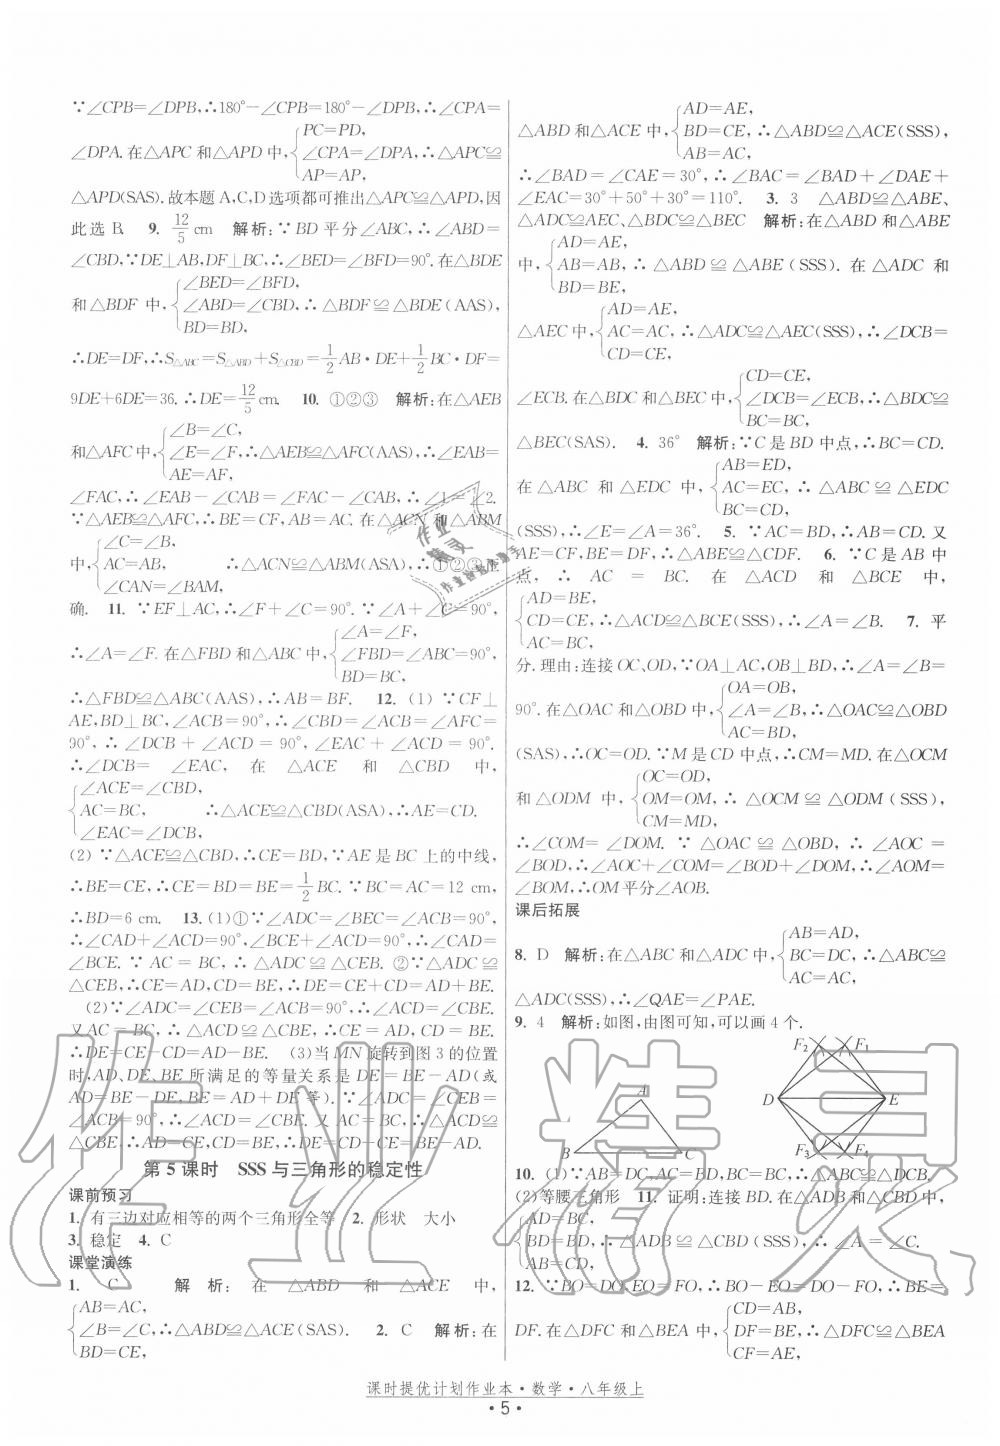 ∵∠CPB=∠DPB,∴180°-∠CPB=180°-∠DPB,∴∠CPA=
∠DPA.在△APC和△APD中,{PC=PD,
∠CPA=∠DPA,∴△APC≌
AP=AP,
△APD(SAS).故本题A,C,D选项都可推出△APC≌△APD,因
此选B. 9. 12/5 cm 解析:∵BD平分∠ABC,∴∠ABD=
∠CBD,∵DE⊥AB,DF⊥BC,∴∠BED=∠BFD=90°.在△BDE
和△BDF中,{∠BED=∠BFD,
∠ABD=∠CBD,∴△BDF≌△BDE(AAS),
BD=BD,
∴DE=DF,∴S△ABC=S△ABD+S△CBD=1/2AB·DE+1/2BC·DF=
9DE+6DE=36.∴DE=12/5cm. 10. ①②③ 解析:在△AEB
和△AFC中,{∠B=∠C,
∠E=∠F,∴△AEB≌△AFC(AAS),∴∠EAB=
AE=AF,
∠FAC,∴∠EAB-∠CAB=∠FAC-∠CAB,∴∠1=∠2.
∵△AEB≌△AFC,∴BE=CF,AB=AC.在△ACN和△ABM
中,{∠C=∠B,
AC=AB, ∴△ACN≌△ABM(ASA),∴①②③正
∠CAN=∠BAM,
确. 11. ∵EF⊥AC,∴∠F+∠C=90°.∵∠A+∠C=90°,
∴∠A=∠F.在△FBD和△ABC中,{∠A=∠F,
∠FBD=∠ABC=90°,
BD=BC,
∴△FBD≌△ABC(AAS),∴AB=BF. 12. (1)∵CF⊥
AE,BD⊥BC,∠ACB=90°,∴∠CBD=∠ACB=∠AFC=
90°,∴∠DCB+∠ACD=90°,∠EAC+∠ACD=90°.
∴∠DCB=∠EAC,在△ACE和△CBD中,
{∠ACE=∠CBD,
AC=BC, ∴△ACE≌△CBD(ASA),∴AE=CD.
∠EAC=∠DCB,
(2)∵△ACE≌△CBD,∴CE=BD,∵AE是BC上的中线,
∴BE=CE,∴CE=BD=BE=1/2BC.∵BC=AC=12 cm,
∴BD=6 cm. 13. (1)①∵∠ADC=∠BEC=∠ACB=90°,
∴∠CAD+∠ACD=90°,∠BCE+∠ACD=90°,∴∠CAD=
∠BCE.∵AC=BC,∴△ADC≌△CEB.②∵△ADC≌
△CEB,∴CE=AD,CD=BE,∴DE=CE+CD=AD+BE.
(2)∵∠ADC=∠CEB=∠ACB=90°,∴∠ACD=∠CBE.
又AC=BC,∴△ACD≌△CBE,∴CE=AD,CD=BE.
∴DE=CE-CD=AD-BE. (3)当MN旋转到图3的位置
时,AD、DE、BE所满足的等量关系是DE=BE-AD(或
AD=BE-DE,BE=AD+DE等).∵∠ADC=∠CEB=
∠ACB=90°,∴∠ACD=∠CBE.又AC=BC,∴△ACD≌
△CBE,∴AD=CE,CD=BE.∴DE=CD-CE=BE-AD.
第5课时 SSS与三角形的稳定性
课前预习
1. 有三边对应相等的两个三角形全等 2. 形状 大小
3. 稳定 4. C
课堂演练
1. C 解析:在△ABD和△ACE中,
{AB=AC,
∠B=∠C,∴△ABD≌△ACE(SAS). 2. C 解析:在
BD=CE,
△ABD和△ACE中,{AD=AE,
BD=CE,∴△ABD≌△ACE(SSS),
AB=AC,
∴∠BAD=∠CAE=30°,∴∠BAC=∠BAD+∠DAE+
∠EAC=30°+50°+30°=110°. 3. 3 △ABD≌△ABE、
△ADC≌△AEC、△BDC≌△BEC 解析:在△ABD和△ABE
中,{AD=AE,
AB=AB,∴△ABD≌△ABE(SSS).在△ADC和
BD=BE,
△AEC中,{AD=AE,
AC=AC,∴△ADC≌△AEC(SSS),∴∠DCB=
CD=CE,
∠ECB.在△BDC和△BEC中,{CD=CE,
∠DCB=∠ECB,∴△BDC≌
BC=BC,
△BEC(SAS). 4. 36° 解析:∵C是BD中点,∴BC=CD.
在△ABC和△EDC中,{AB=ED,
AC=EC,∴△ABC≌△EDC
BC=CD,
(SSS),∴∠E=∠A=36°. 5. ∵AC=BD,∴AB=CD.又
AE=CF,BE=DF,∴△ABE≌△CDF. 6. ∵C是AB中
点,∴AC=BC.在△ACD和△BCE中,
{AD=BE,
CD=CE,∴△ACD≌△BCE(SSS),∴∠A=∠B. 7. 平
AC=BC,
分.理由:连接OC,OD,∵OA⊥AC,OB⊥BD,∴∠A=∠B=
90°.在△OAC和△OBD中,{OA=OB,
∠A=∠B,∴△OAC≌△OBD
AC=BD,
(SAS),∴OC=OD.∵M是CD中点,∴CM=MD.在△OCM
和△ODM中,{OC=OD,
OM=OM,∴△OCM≌△ODM(SSS),
CM=MD,
∴∠COM=∠DOM.∵△OAC≌△OBD,∴∠AOC=
∠BOD,∴∠AOC+∠COM=∠BOD+∠DOM,∴∠AOM=
∠BOM,∴OM平分∠AOB.
课后拓展
8. D 解析:在△ABC和△ADC中,{AB=AD,
BC=DC,∴△ABC≌
AC=AC,
△ADC(SSS),∴∠QAE=∠PAE.
9. 4 解析:如图,由图可知,可以画4个.
F₂ F₁
A
D E
B C
F₃ F₄
10. (1)∵AB=DC,AC=DB,BC=CB,∴△ABC≌△DCB.
(2)等腰三角形 11. 证明:连接BD.在△ABD和△CBD中,
{AD=BC,
BD=BD,∴△ABD≌△CBD(SSS),∴∠A=∠C.
AB=CD,
12. ∵BO=DO,EO=FO,∴BO-EO=DO-FO,∴BE=
DF.在△DFC和△BEA中,{CD=AB,
DF=BE,∴△DFC≌△BEA
CF=AE,
课时提优计划作业本·数学·八年级上
·5·
作业精灵